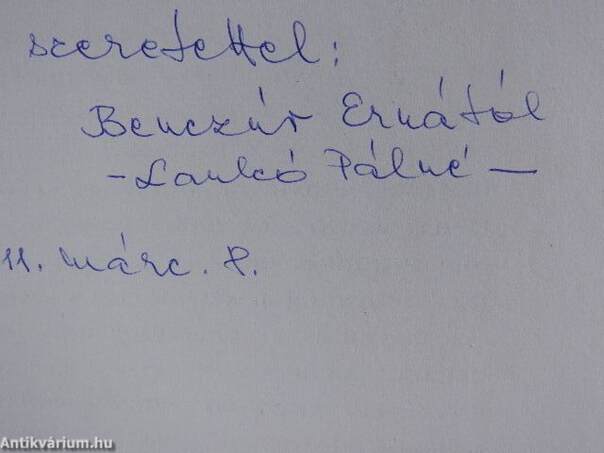 szeretettel:
Benczúr Ernától
- Lankó Pálné —
11. márc. 8.
Antikvárium.hu